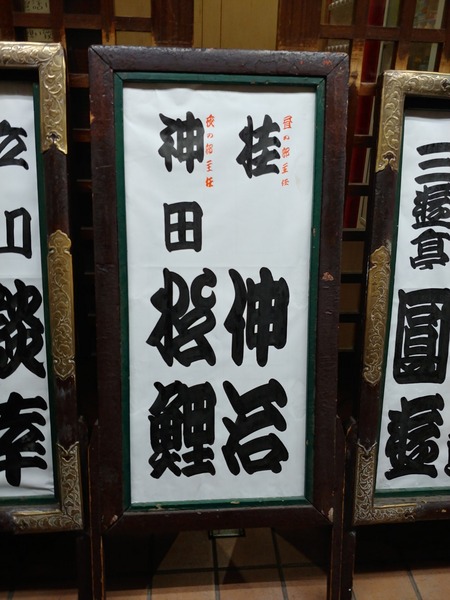 三遊亭 圓遊
昼の部主任
桂 伸治
夜の部主任
神田 松鯉
立川 談幸